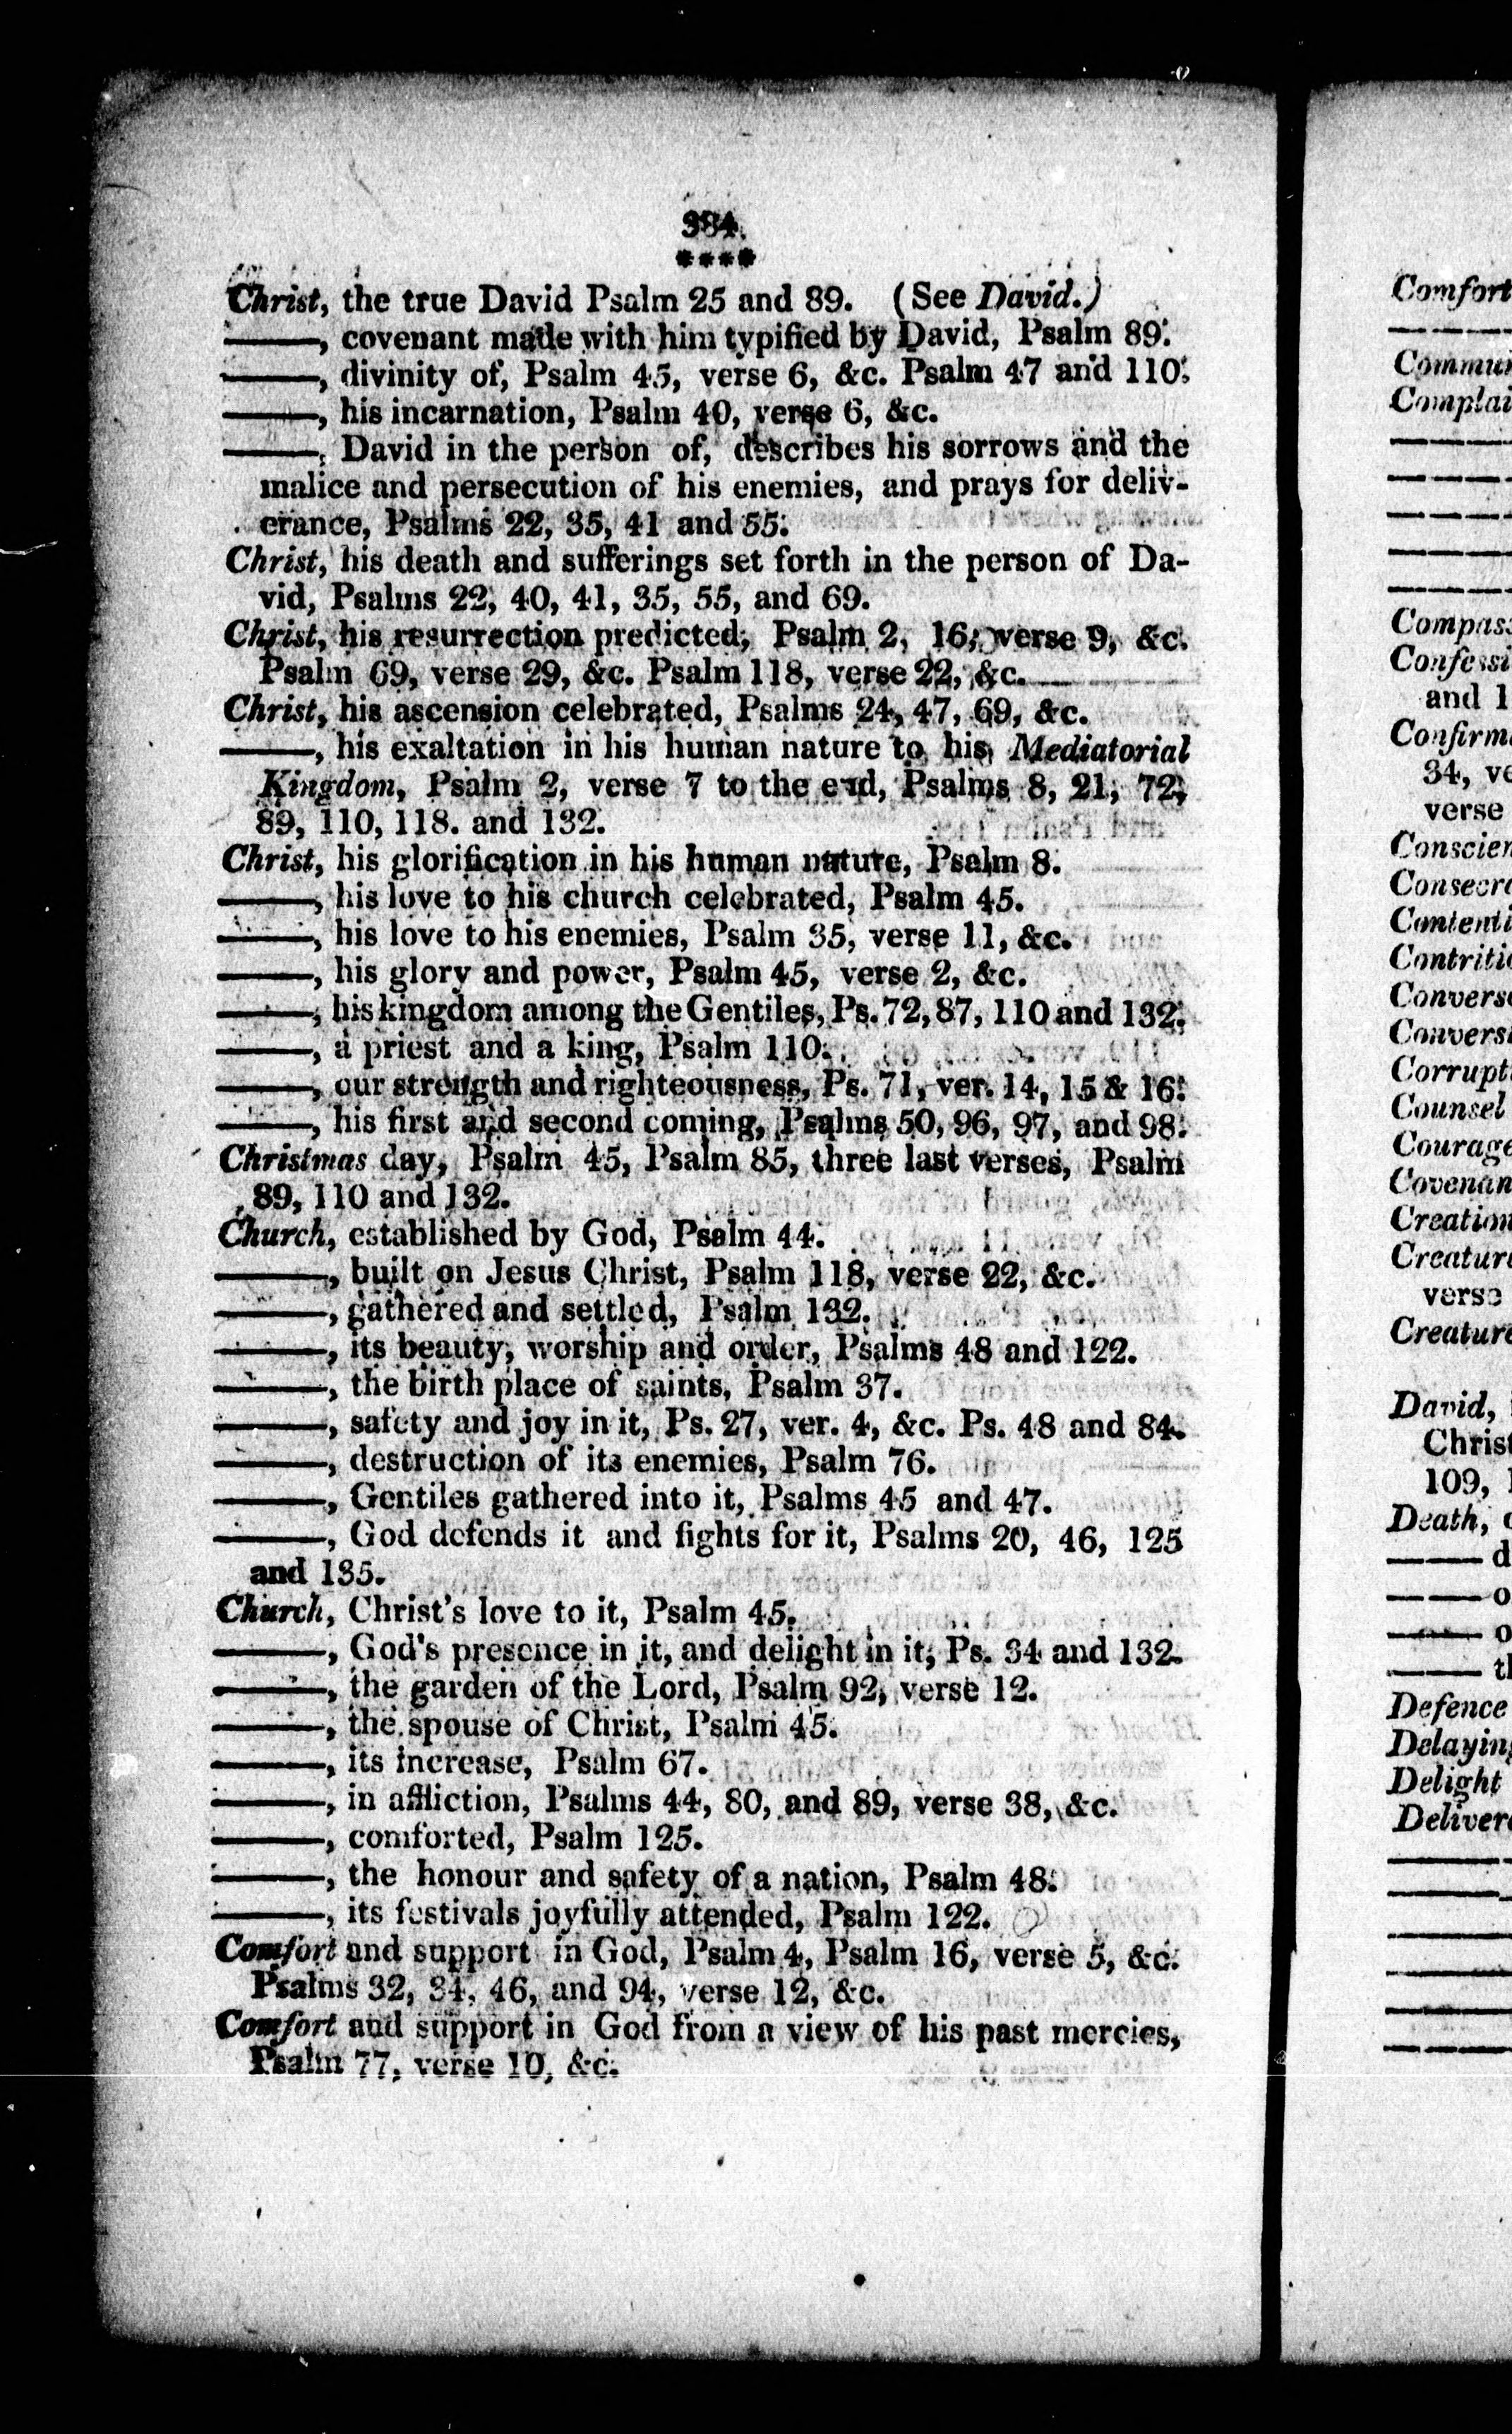 384.
****
Christ, the true David Psalm 25 and 89. (See David.)
———, covenant made with him typified by David, Psalm 89.
———, divinity of, Psalm 45, verse 6, &c. Psalm 47 and 110.
———, his incarnation, Psalm 40, verse 6, &c.
———, David in the person of, describes his sorrows and the
malice and persecution of his enemies, and prays for deliv-
erance, Psalms 22, 35, 41 and 55.
Christ, his death and sufferings set forth in the person of Da-
vid, Psalms 22, 40, 41, 35, 55, and 69.
Christ, his resurrection predicted, Psalm 2, 16, verse 9, &c.
Psalm 69, verse 29, &c. Psalm 118, verse 22, &c.
Christ, his ascension celebrated, Psalms 24, 47, 69, &c.
———, his exaltation in his human nature to his Mediatorial
Kingdom, Psalm 2, verse 7 to the end, Psalms 8, 21, 72,
89, 110, 118. and 132.
Christ, his glorification in his human nature, Psalm 8.
———, his love to his church celebrated, Psalm 45.
———, his love to his enemies, Psalm 35, verse 11, &c.
———, his glory and power, Psalm 45, verse 2, &c.
———, his kingdom among the Gentiles, Ps. 72, 87, 110 and 132.
———, a priest and a king, Psalm 110.
———, our strength and righteousness, Ps. 71, ver. 14, 15 & 16.
———, his first and second coming, Psalms 50, 96, 97, and 98.
Christmas day, Psalm 45, Psalm 85, three last verses, Psalm
89, 110 and 132.
Church, established by God, Psalm 44.
———, built on Jesus Christ, Psalm 118, verse 22, &c.
———, gathered and settled, Psalm 132.
———, its beauty, worship and order, Psalms 48 and 122.
———, the birth place of saints, Psalm 37.
———, safety and joy in it, Ps. 27, ver. 4, &c. Ps. 48 and 84.
———, destruction of its enemies, Psalm 76.
———, Gentiles gathered into it, Psalms 45 and 47.
———, God defends it and fights for it, Psalms 20, 46, 125
and 135.
Church, Christ's love to it, Psalm 45.
———, God's presence in it, and delight in it, Ps. 34 and 132.
———, the garden of the Lord, Psalm 92, verse 12.
———, the spouse of Christ, Psalm 45.
———, its increase, Psalm 67.
———, in affliction, Psalms 44, 80, and 89, verse 38, &c.
———, comforted, Psalm 125.
———, the honour and safety of a nation, Psalm 48.
———, its festivals joyfully attended, Psalm 122.
Comfort and support in God, Psalm 4, Psalm 16, verse 5, &c.
Psalms 32, 34, 46, and 94, verse 12, &c.
Comfort and support in God from a view of his past mercies,
Psalm 77, verse 10, &c.
Comfort
Commun
Complai
Compass
Confessi
and 1
Confirma
34, ve
verse
Conscien
Consecra
Contenti
Contritio
Converse
Conversa
Corrupt
Counsel
Courage
Covenan
Creation
Creature
verse
Creature
David,
Christ
109,
Death,
—— d
—— o
—— o
—— th
Defence
Delaying
Delight
Delivera